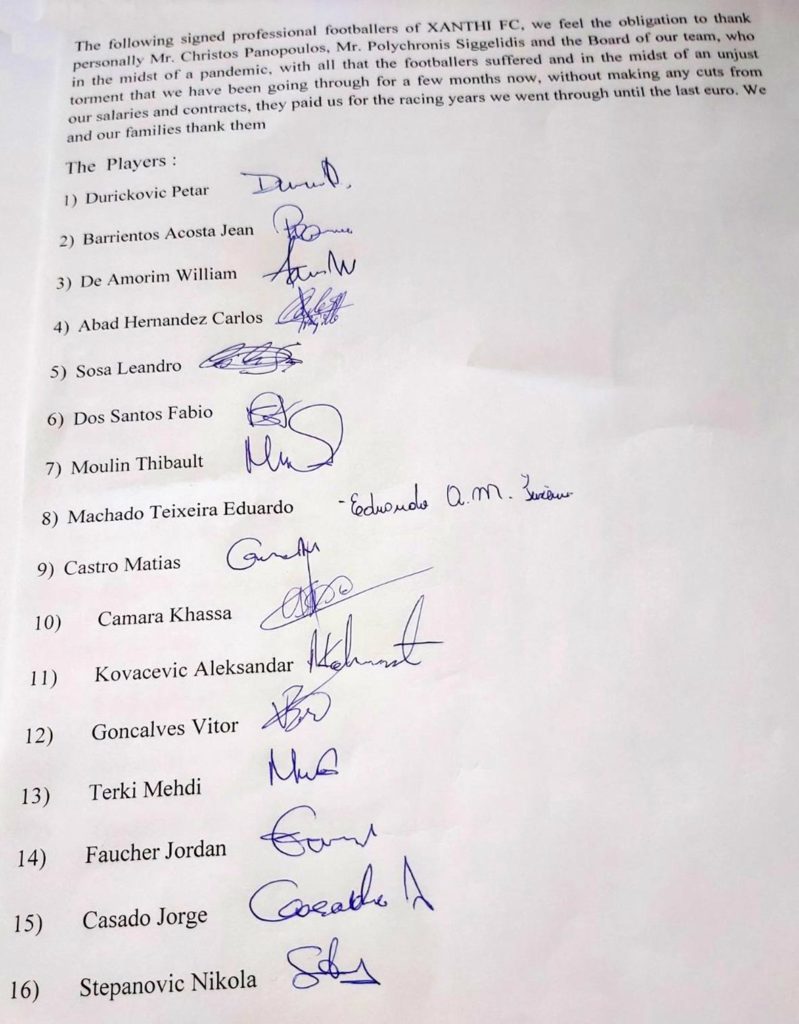 The following signed professional footballers of XANTHI FC, we feel the obligation to thank
personally Mr. Christos Panopoulos, Mr. Polychronis Siggelidis and the Board of our team, who
in the midst of a pandemic, with all that the footballers suffered and in the midst of an unjust
torment that we have been going through for a few months now, without making any cuts from
our salaries and contracts, they paid us for the racing years we went through until the last euro. We
and our families thank them
The Players :
1) Durickovic Petar
2) Barrientos Acosta Jean
3) De Amorim William
4) Abad Hernandez Carlos
5) Sosa Leandro
6) Dos Santos Fabio
7) Moulin Thibault
8) Machado Teixeira Eduardo - Eduardo A. M.
9) Castro Matias
10) Camara Khassa
11) Kovacevic Aleksandar
12) Goncalves Vitor
13) Terki Mehdi
14) Faucher Jordan
15) Casado Jorge
16) Stepanovic Nikola